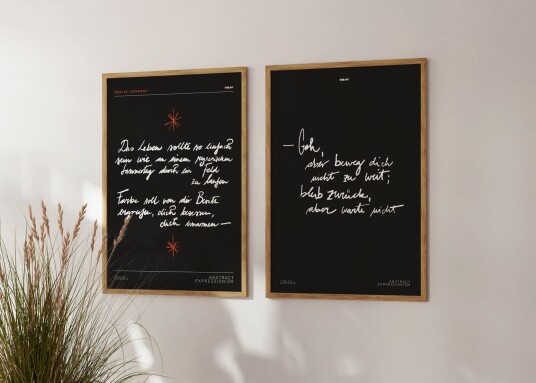 BERLIN, GERMANY
Das Leben sollte so einfach
sein wie an einem
Sonntag durch ein Feld
zu laufen
Farbe soll von dir Besitz
ergreifen, dich
dich umarmen —
ABSTRACT
EXPRESSIONISM
— Geh,
aber beweg dich
nicht zu weit;
bleib zurück,
aber warte nicht
ABSTRACT
EXPRESSIONISM